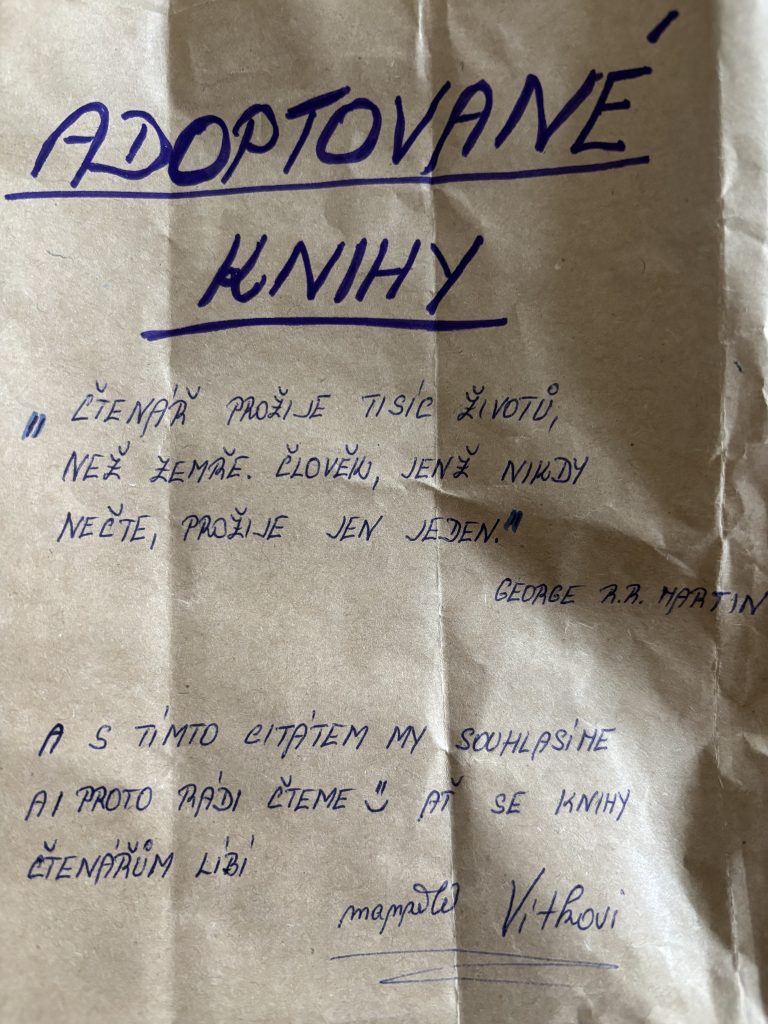 ADOPTOVANÉ
KNIHY
"ČTENÁŘ PROŽIJE TISÍC ŽIVOTŮ,
NEŽ ZEMŘE. ČLOVĚK, JENŽ NIKDY
NEČTE, PROŽIJE JEN JEDEN."
GEORGE R.R. MARTIN
A S TÍMTO CITÁTEM MY SOUHLASÍME
A I PROTO RÁDI ČTEME AŤ SE KNIHY
ČTENÁŘŮM LÍBÍ
manželé Vítkovi